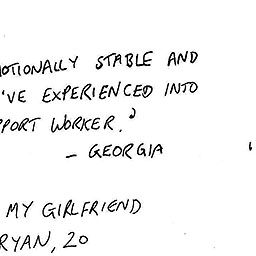 OTIONALLY STABLE AND
'VE EXPERIENCED INTO
PPORT WORKER."
- GEORGIA
MY GIRLFRIEND
RYAN, 20